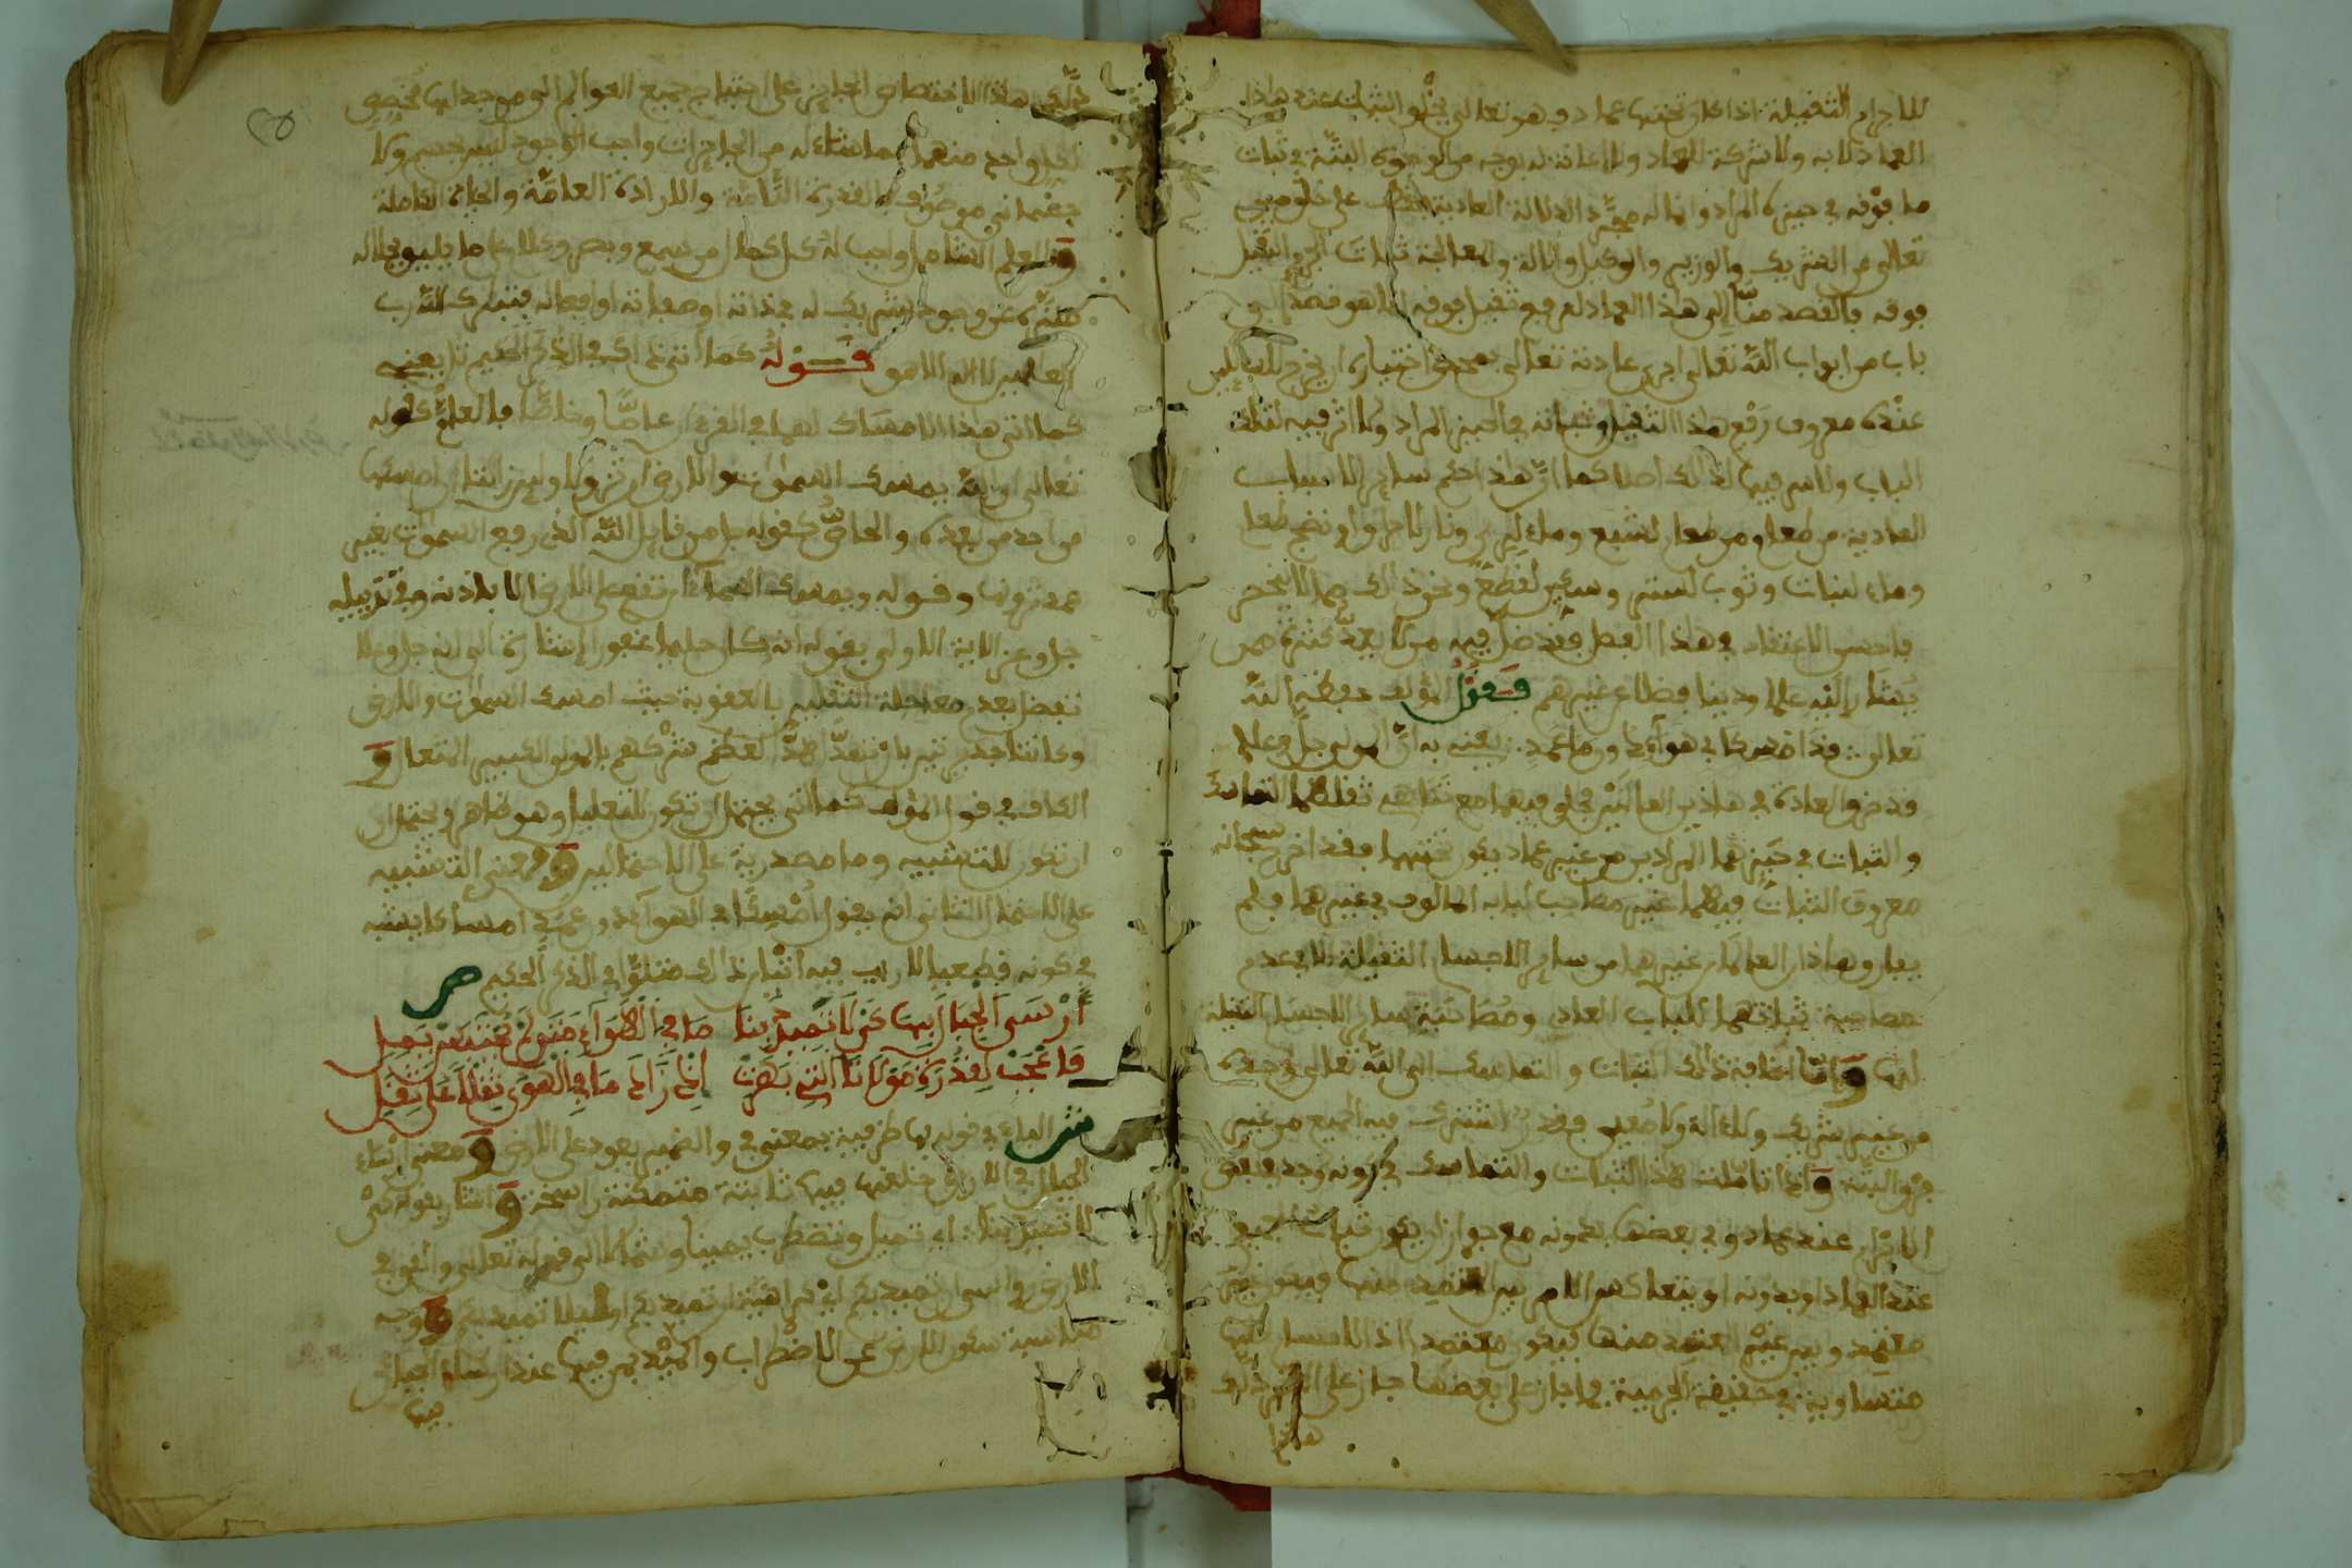 للاجرام الثقيلة اذا كان تحتها عماد وهو تعالى يخلق الثبات عند هاذا
العماد لا به ولا شركة للعماد ولا اعانة له بوجه من الوجوه البتة في ثبات
ما فوقه في حيزه المراد وانما له مجرد الدلالة العادية على خلق مولانا
تعالى عن الشريك والوزير والوكيل والالة والمعالجة ثبات الجرم الثقيل
فوقه فالقصد منا الى هذا العماد لرفع ثقيل فوقه انما هو قصد الى
باب من ابواب الله تعالى اجرى عادته تعالى بمحض اختياره ان يخرج للسائلين
عنده معروف رفع هذا الثقيل وثباته في الحيز المراد ولا اثر فيه لذلك
الباب ولا سر فيها لذلك اصلا كما ان هذا حكم ساير الاسباب
العادية من طعام وطعام لشبع وماء لري ونار لاحراق او نضج طعام
وماء لنبات وثوب لستر وسكين لقطع ونحو ذلك مما لا ينحصر
فاحسن الاعتقاد في هذا الفصل فقد ضل فيه من لا يعد كثرة ممن
يشار اليه علما ودينا فضلا عن غيرهم فقول المؤلف حفظه الله
تعالى قد امسكا في هواء دون ما عمد يعني به ان المولى جل وعلا
قد خرق العادة في هاذين العالمين فخلق فيهما مع تناهي ثقلهما التماسك
والثبات في حيزهما المرادين من غير عماد يكون تحتهما فقد اخرج سبحانه
معروف الثبات فيهما غير مصاحب لبابه المالوف في غيرهما فلم
يفارق هاذان العالمان غيرهما من ساير الاجسام الثقيلة الا في عدم
مصاحبة ثباتهما للباب العادي ومصاحبة ساير الاجسام الثقيلة
لها واما اضافة ذلك الثبات والتماسك الى الله تعالى وحده
من غير شريك ولا الة ولا معين فقد اشترك فيه الجميع من غير
فرق البتة واذا تاملت هذا الثبات والتماسك في كونه وجد في بعض
الاجرام عند عماد وفي بعضها بدونه مع جواز ان يكون ثبات الجميع
عند العماد او بدونه او يتعاكس الامر بين المعتمد منها فيكون غير
معتمد وبين غير المعتمد منها فيكون معتمدا اذ الاجسام كلها
متساوية في حقيقة الجرمية فما جاز على بعضها جاز على الاخر دلك
هاذا
دلك هاذا الاختصاص الجايز على احتياج جميع العوالم الى موجد لها مخصص
لكل واحد منهما بما شاء له من الجايزات واجب الوجود ليس بجسم ولا
جسماني موصوف بالقدرة التامة والارادة العامة والحياة الكاملة
والعلم الشامل واجب له كل كمال من سمع وبصر وكلام على ما يليق بجلاله
منزه عن وجود شريك له في ذاته او صفاته او افعاله فتبارك الله رب
العالمين لا اله الا هو قوله كما اتى ذاك في الذكر الحكيم تلا يعني
كما اتى هذا الامساك لهما في القرءان عاما وخاصا فالعام كقوله
تعالى ان الله يمسك السموات والارض ان تزولا ولين زالتا ان امسكهما
من احد من بعده والخاص كقوله جل من قايل الله الذي رفع السموات بغير
عمد ترونها وقوله ويمسك السماء ان تقع على الارض الا باذنه وفي تذييله
جل وعز الاية الاولى بقوله انه كان حليما غفورا اشارة الى انه جل وعلا
تفضل بعدم معاجلة الثقلين بالعقوبة حيث امسك السموات والارض
وكانتا جديرتين بان تنهدا هدا لعظم شركهم بالمولى الكبير المتعال و
الكاف في قول المؤلف كما اتى يحتمل ان تكون للتعليل وهو ظاهر ويحتمل ان
ان تكون للتشبيه وما مصدرية على الاحتمالين ومعنى التشبيه
على الاحتمال الثاني انه يقول امسكا في الهواء دون عمد امساكا يشبه
في كونه قطعيا لا ريب فيه اتيان ذلك متلوا في الذكر الحكيم ص
ارسى الجبال بها كي لا تميد بنا ما في الهواء متى لم تحتبس يمل
فاعجب لقدرة مولانا التي بهرت اذ زاد ما في الهوى ثقلا على ثقل
ش الباء في قوله بها ظرفية بمعنى في والضمير يعود على الارض ومعنى ارساء
الجبال في الارض خلقها فيها ثابتة متمكنة راسخة واشار بقوله كي
لا تميد بنا اي تميل وتضطرب يمينا وشمالا الى قوله تعالى والقى في
الارض رواسي ان تميد بكم اي كراهية ان تميد بكم او ليلا تميد بكم ووجه
مناسبة سكون الارض عن الاضطراب والميد بمن فيها عند ارساء الجبال
فيها